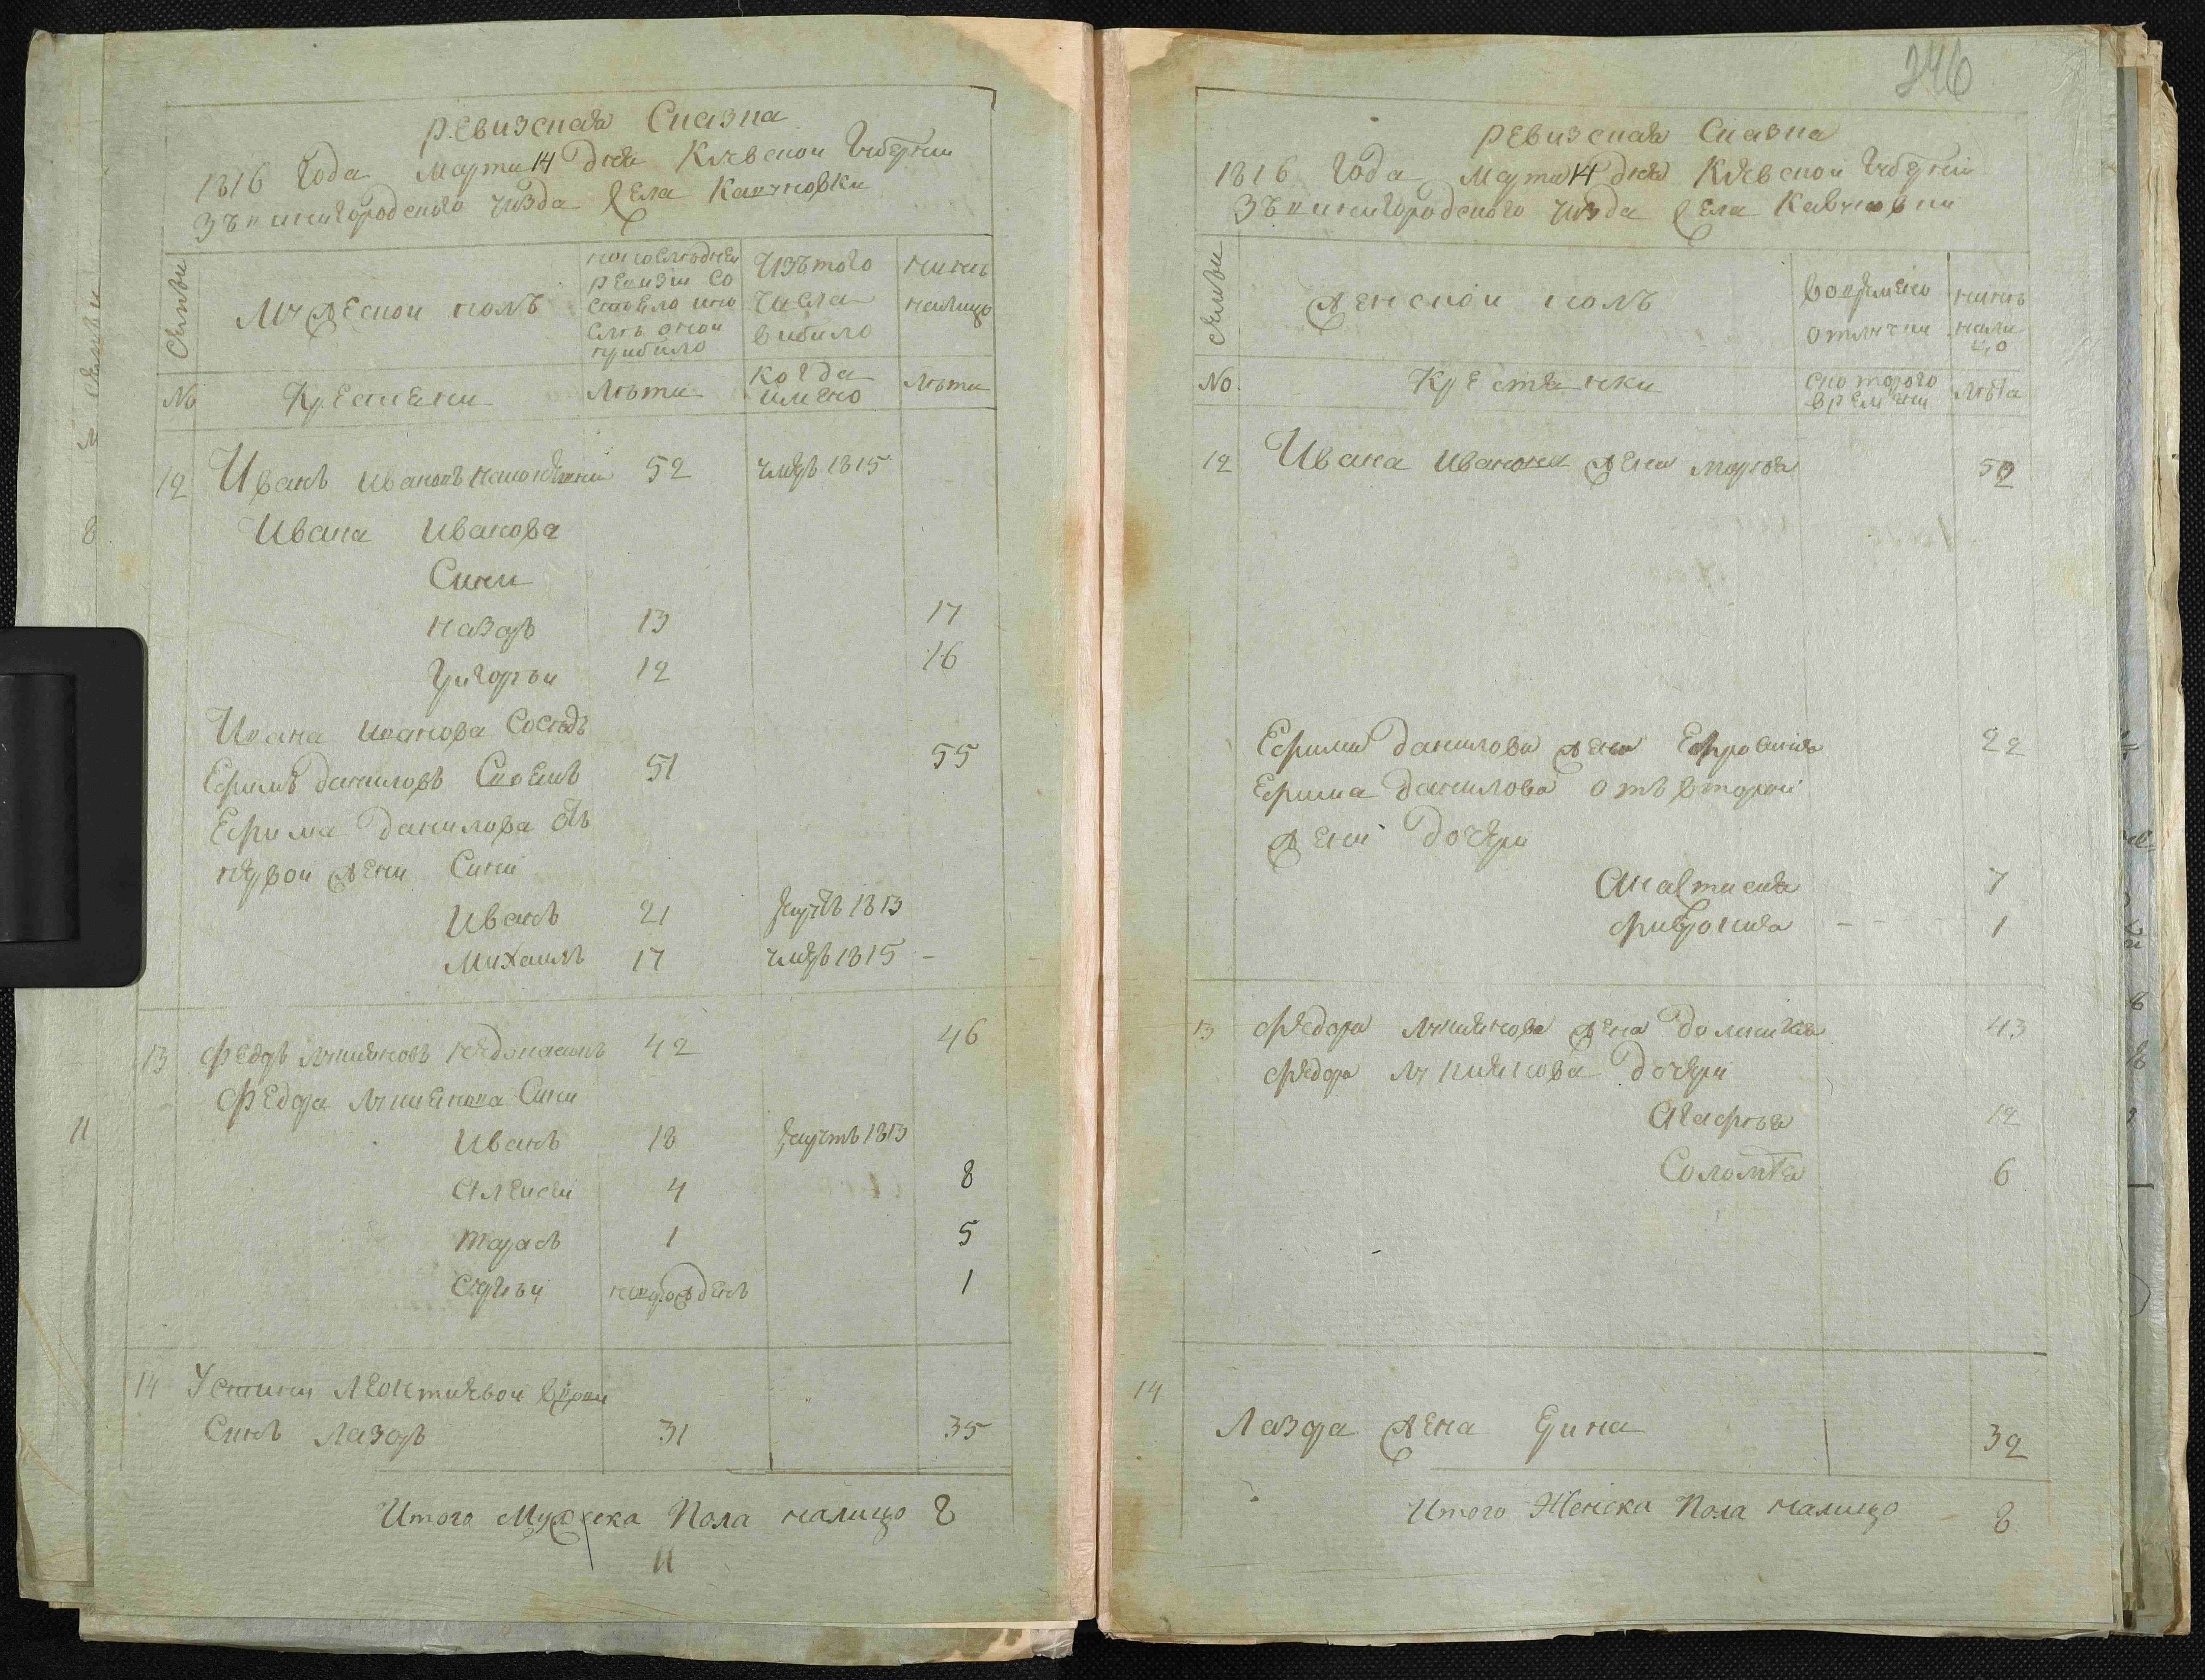 ревизская Сказка
1816 Года Марта 14 дня Киевской Губернии
Звенигородского уизда Села Кавуновки
Семьи
Мужеской полъ
по последней
ревизи со
стояло и по
слѣ оной
прибило
Изъ того
числа
вибило
нинѣ
налицо
№
Крестяни
Лѣта
Когда
имено
Лѣта
12 Иванъ Ивановъ 52 умеръ 1815
Ивана Иванова
Сини
Назаръ 13 17
Григорьи 12 16
Ивана Иванова Соседъ
Ефимъ даниловъ 51 55
Ефима данилова отъ
первои жени Сини
Иванъ 21 рекрутъ 1813
Михаилъ 17 умеръ 1815 -
13 Федоръ Лукияновъ 42 46
Федора Лукиянова Сини
Иванъ 18 рекрутъ 1813
Алексеи 4 8
Тарасъ 1 5
Сергѣи новорожденъ 1
14 Устини Леонтиевои вдови
Синъ Лазаръ 31 35
Итого Мужеска Пола налицо 8
11
8
11
246
ревизская Сказка
1816 Года Марта 14 дня Киевской Губернии
Звенигородского уизда Села Кавуновки
Семьи
Женской полъ
во времено
отлучки
нинѣ
нали
цо
№
Крестянки
с которого
времени
лѣта
12 Ивана Иванова жена Марфа 52
Ефима данилова жена Ефросиния 22
Ефима данилова отъ второй
жени дочери
Анастасия 7
Феврония - 1
13 Федора Лукиянова жена домникия 43
Федора Лукиянова дочери
Агафия 12
Соломия 6
14
Лазара жена Ерина 32
Итого Женска Пола налицо 8